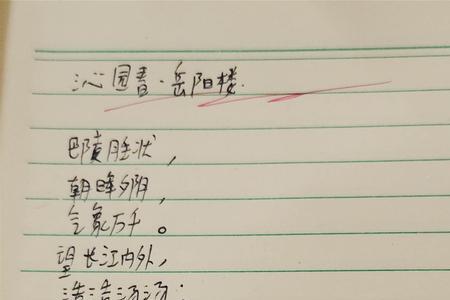 沁园春·岳阳楼
巴陵胜状，
朝晖夕阴，
气象万千。
望长江内外，
浩浩汤汤；